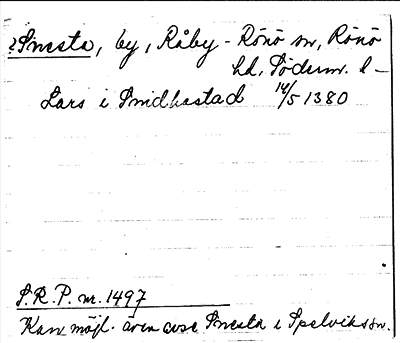 ?Snesta, by, Råby-Rönö sn, Rönö
hd, Söderm. l-
Lars i Snidhastad 14/5 1380
S.R.P. nr. 1497
Kan möjl. även avse Snesta i Spelviks sn.